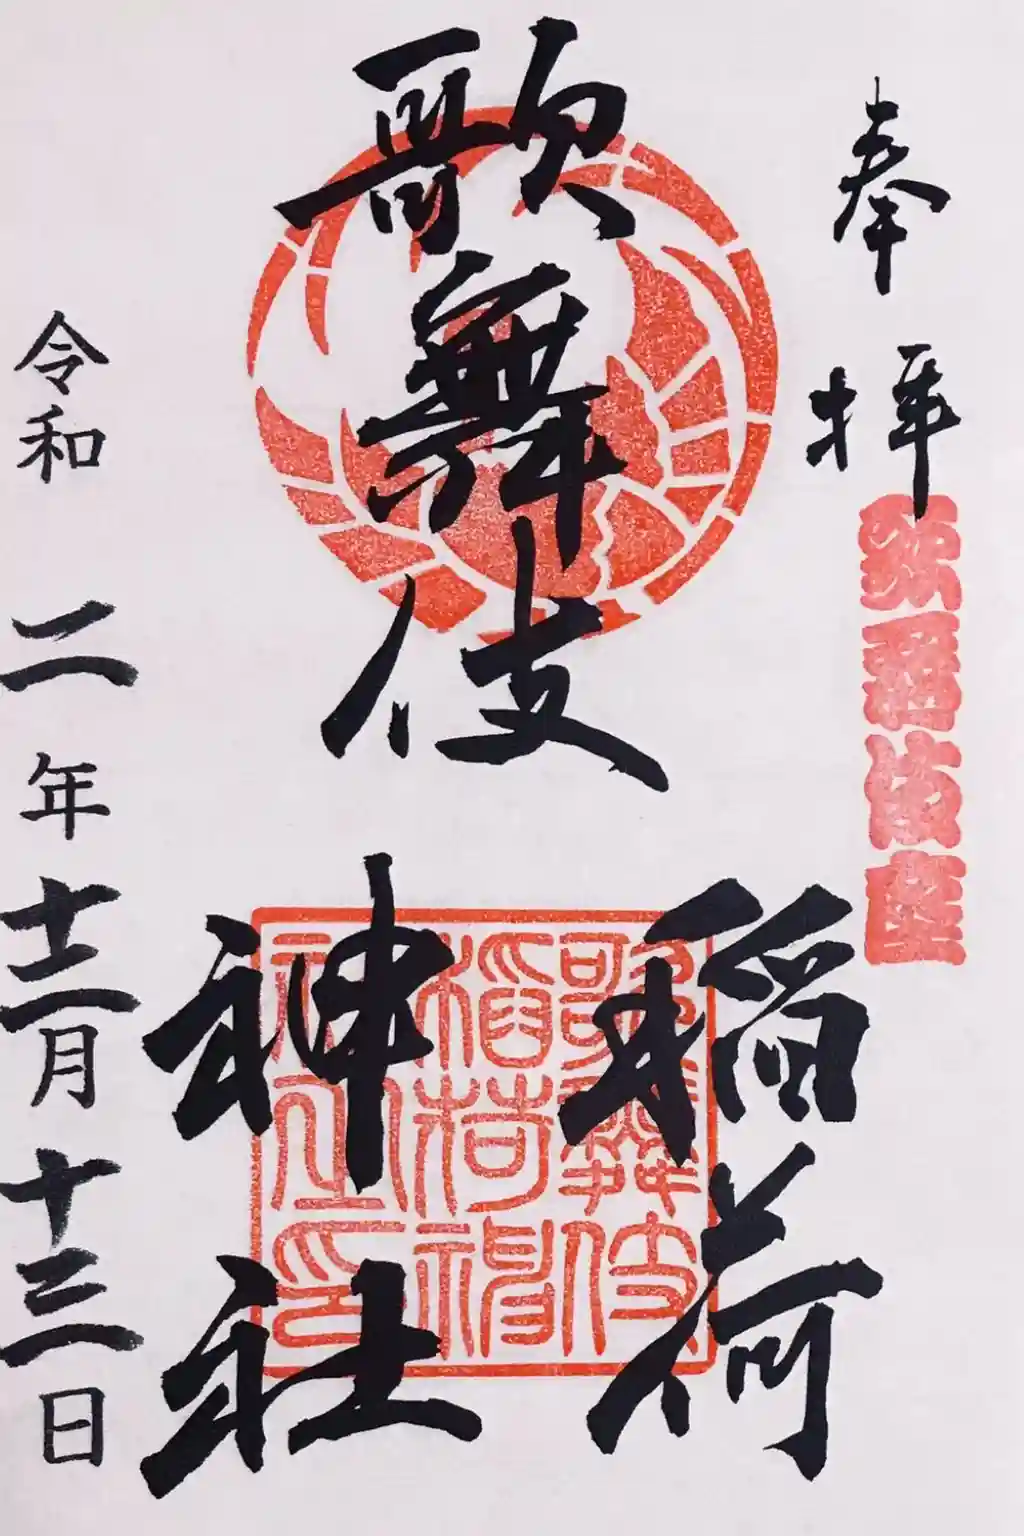 奉拝
歌舞伎座
歌舞伎
稲荷
神社
歌舞伎
稲荷神
社之印
令和二年十二月十三日